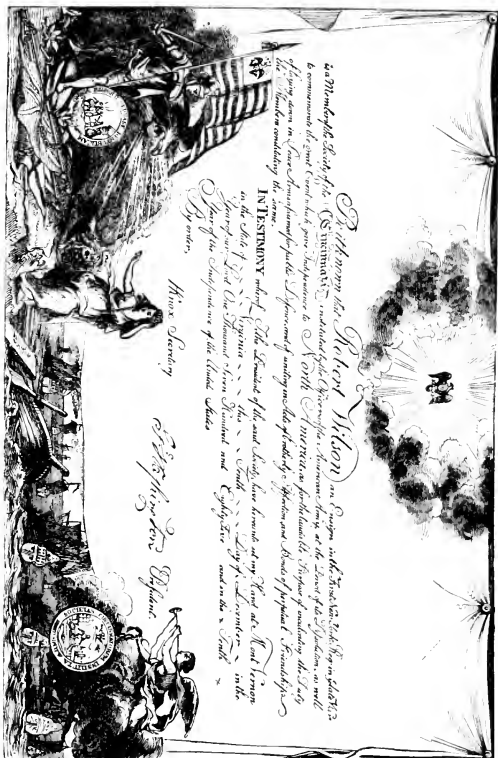 Be it known that Robert Wilson an Ensign in the First New York Reg
is a Member of the Society of the Cincinnati; instituted by the Officers of the American Army, at the Period of its Dissolution, as well
to commemorate the great Event which gave Independence to North America, as for the laudable Purpose of inculcating the Duty
of laying down in Peace Arms assumed for public Defence, and of uniting in Acts of brotherly Affection and Bonds of perpetual Friendship
the Members constituting the same.
IN TESTIMONY whereof I the President of the said Society have hereunto set my Hand at Mount Vernon
in the State of Virginia this Tenth Day of December in the
Year of our Lord One Thousand Seven Hundred and Eighty Five and in the Tenth
Year of the Independence of the United States
By order,
Knox Secretary
G Washington President
SOCIETAS CINCINNATORUM INSTITUTA